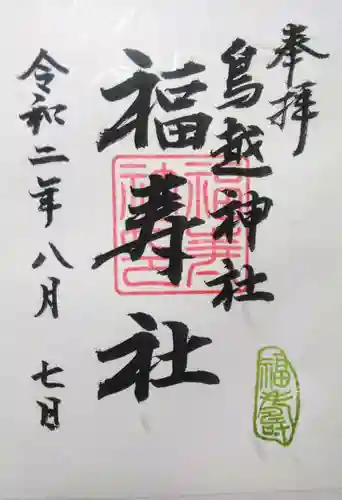 奉拝
鳥越神社
福寿社
令和二年八月七日
福寿